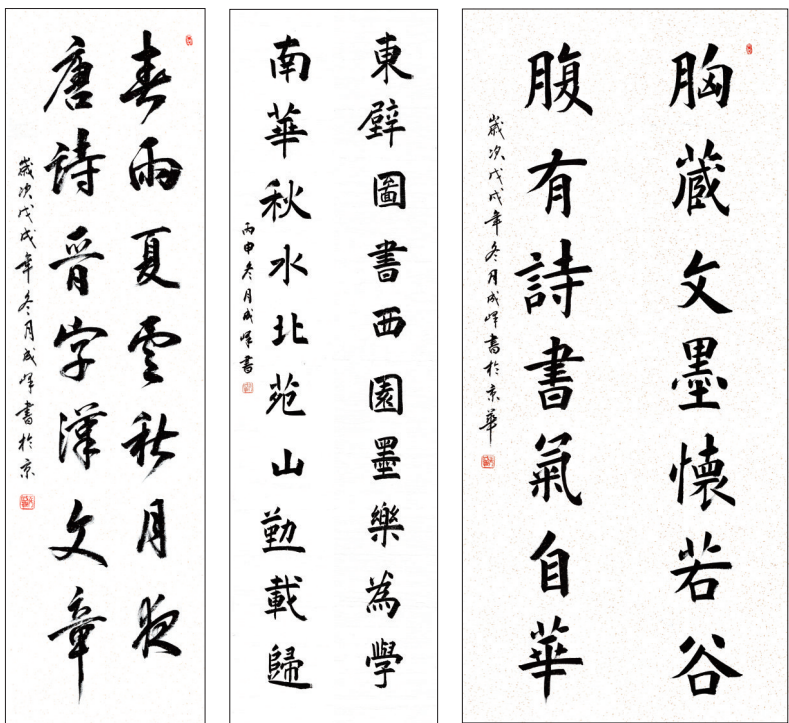 春雨夏雲秋月夜
唐詩晉字漢文章
歲次戊戌年冬月成峰書於京
東壁圖書西園墨樂為學
南華秋水北苑山勤載歸
丙申冬月成峰書
胸藏文墨懷若谷
腹有詩書氣自華
歲次戊戌年冬月成峰書於京華